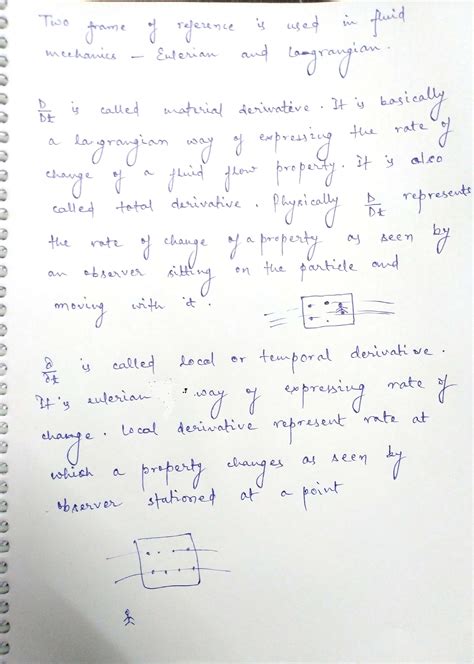 Two frame of reference is used in fluid
mechanics – Eulerian and lagrangian.
D/Dt is called material derivative. It is basically
a lagrangian way of expressing the rate of
change of a fluid flow property. It is also
called total derivative. Physically D/Dt represents
the rate of change of a property as seen by
an observer sitting on the particle and
moving with it.
∂/∂t is called local or temporal derivative.
It's eulerian way of expressing rate of
change. Local derivative represent rate at
which a property changes as seen by
observer stationed at a point